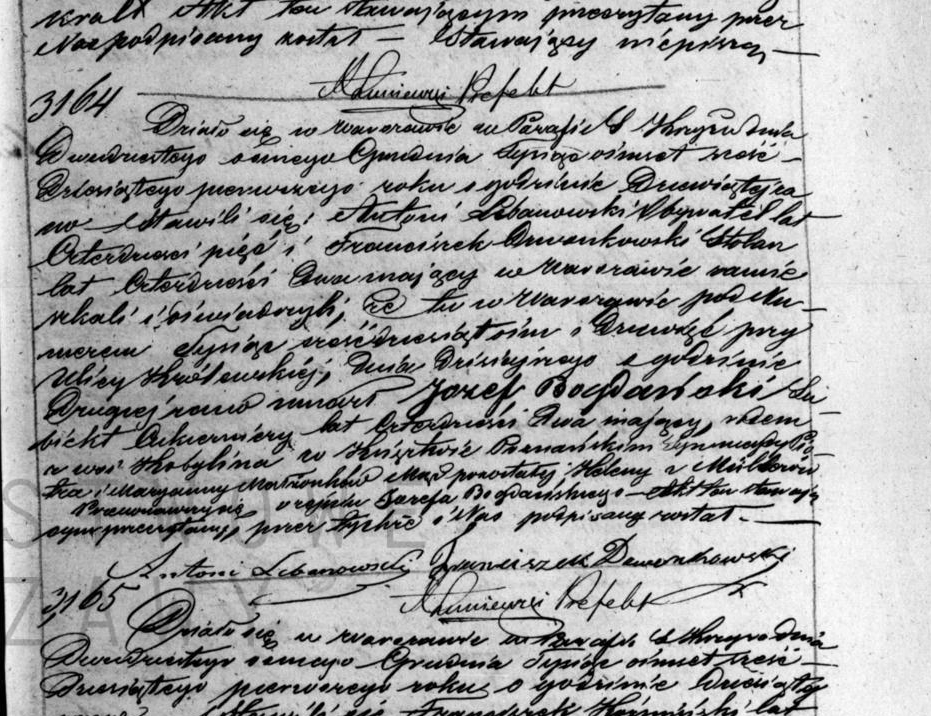 kralt Akt ten stawającym przeczytany przez
Nas podpisany został — Stawający niepiszą —
Prefekt
3164
Działo się w Warszawie w Parafii S Krzyża dnia
Dwudziestego osmego Grudnia Tysiąc ośmset sześć –
Dziesiątego pierwszego roku o godzinie Dziewiątej ra
no – Stawili się; Antoni Lebanowski Obywatel lat
Czterdzieści pięć i Franciszek Stolarz
lat Czterdzieści Dwa mający w Warszawie zamie
szkali i oświadczyli, że tu w Warszawie pod Nu –
merem Tysiąc sześćdziesiąt ośm o Dziewięć przy
Ulicy Królewskiej, Dnia Dzisiejszego o godzinie
Drugiej rano umarł Józef Bogdański Su
biekt Cukierniczy lat Czterdzieści Dwa mający, rodem
z wsi Kobylina w Księstwie Poznańskim Syn Pio
tra i Maryanny Małżonków Mąż pozostałej Heleny z
o zejściu Józefa Bogdańskiego – Akt ten stawają
cym przeczytany, przez tychże i Nas podpisany został. —
Antoni Lebanowski Franciszek
3165
Prefekt
Działo się w Warszawie w Parafii S Krzyża dnia
Dwudziestego osmego Grudnia Tysiąc ośmset sześć –
Dziesiątego pierwszego roku o godzinie Dziesiątej
Stawili się Franciszek lat